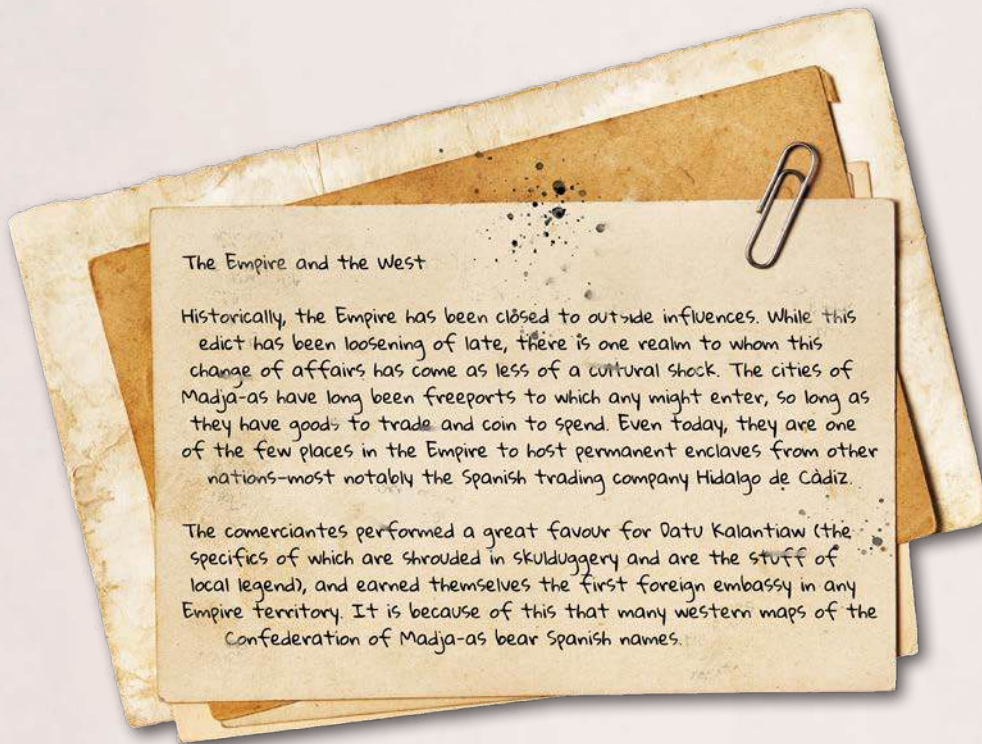 The Empire and the West
Historically, the Empire has been closed to outside influences. While this
edict has been loosening of late, there is one realm to whom this
change of affairs has come as less of a cultural shock. The cities of
Madja-as have long been freeports to which any might enter, so long as
they have goods to trade and coin to spend. Even today, they are one
of the few places in the Empire to host permanent enclaves from other
nations-most notably the Spanish trading company Hidalgo de Càdiz.
The comerciantes performed a great favour for Datu Kalantiaw (the
specifics of which are shrouded in skulduggery and are the stuff of
local legend), and earned themselves the first foreign embassy in any
Empire territory. It is because of this that many western maps of the
Confederation of Madja-as bear Spanish names.